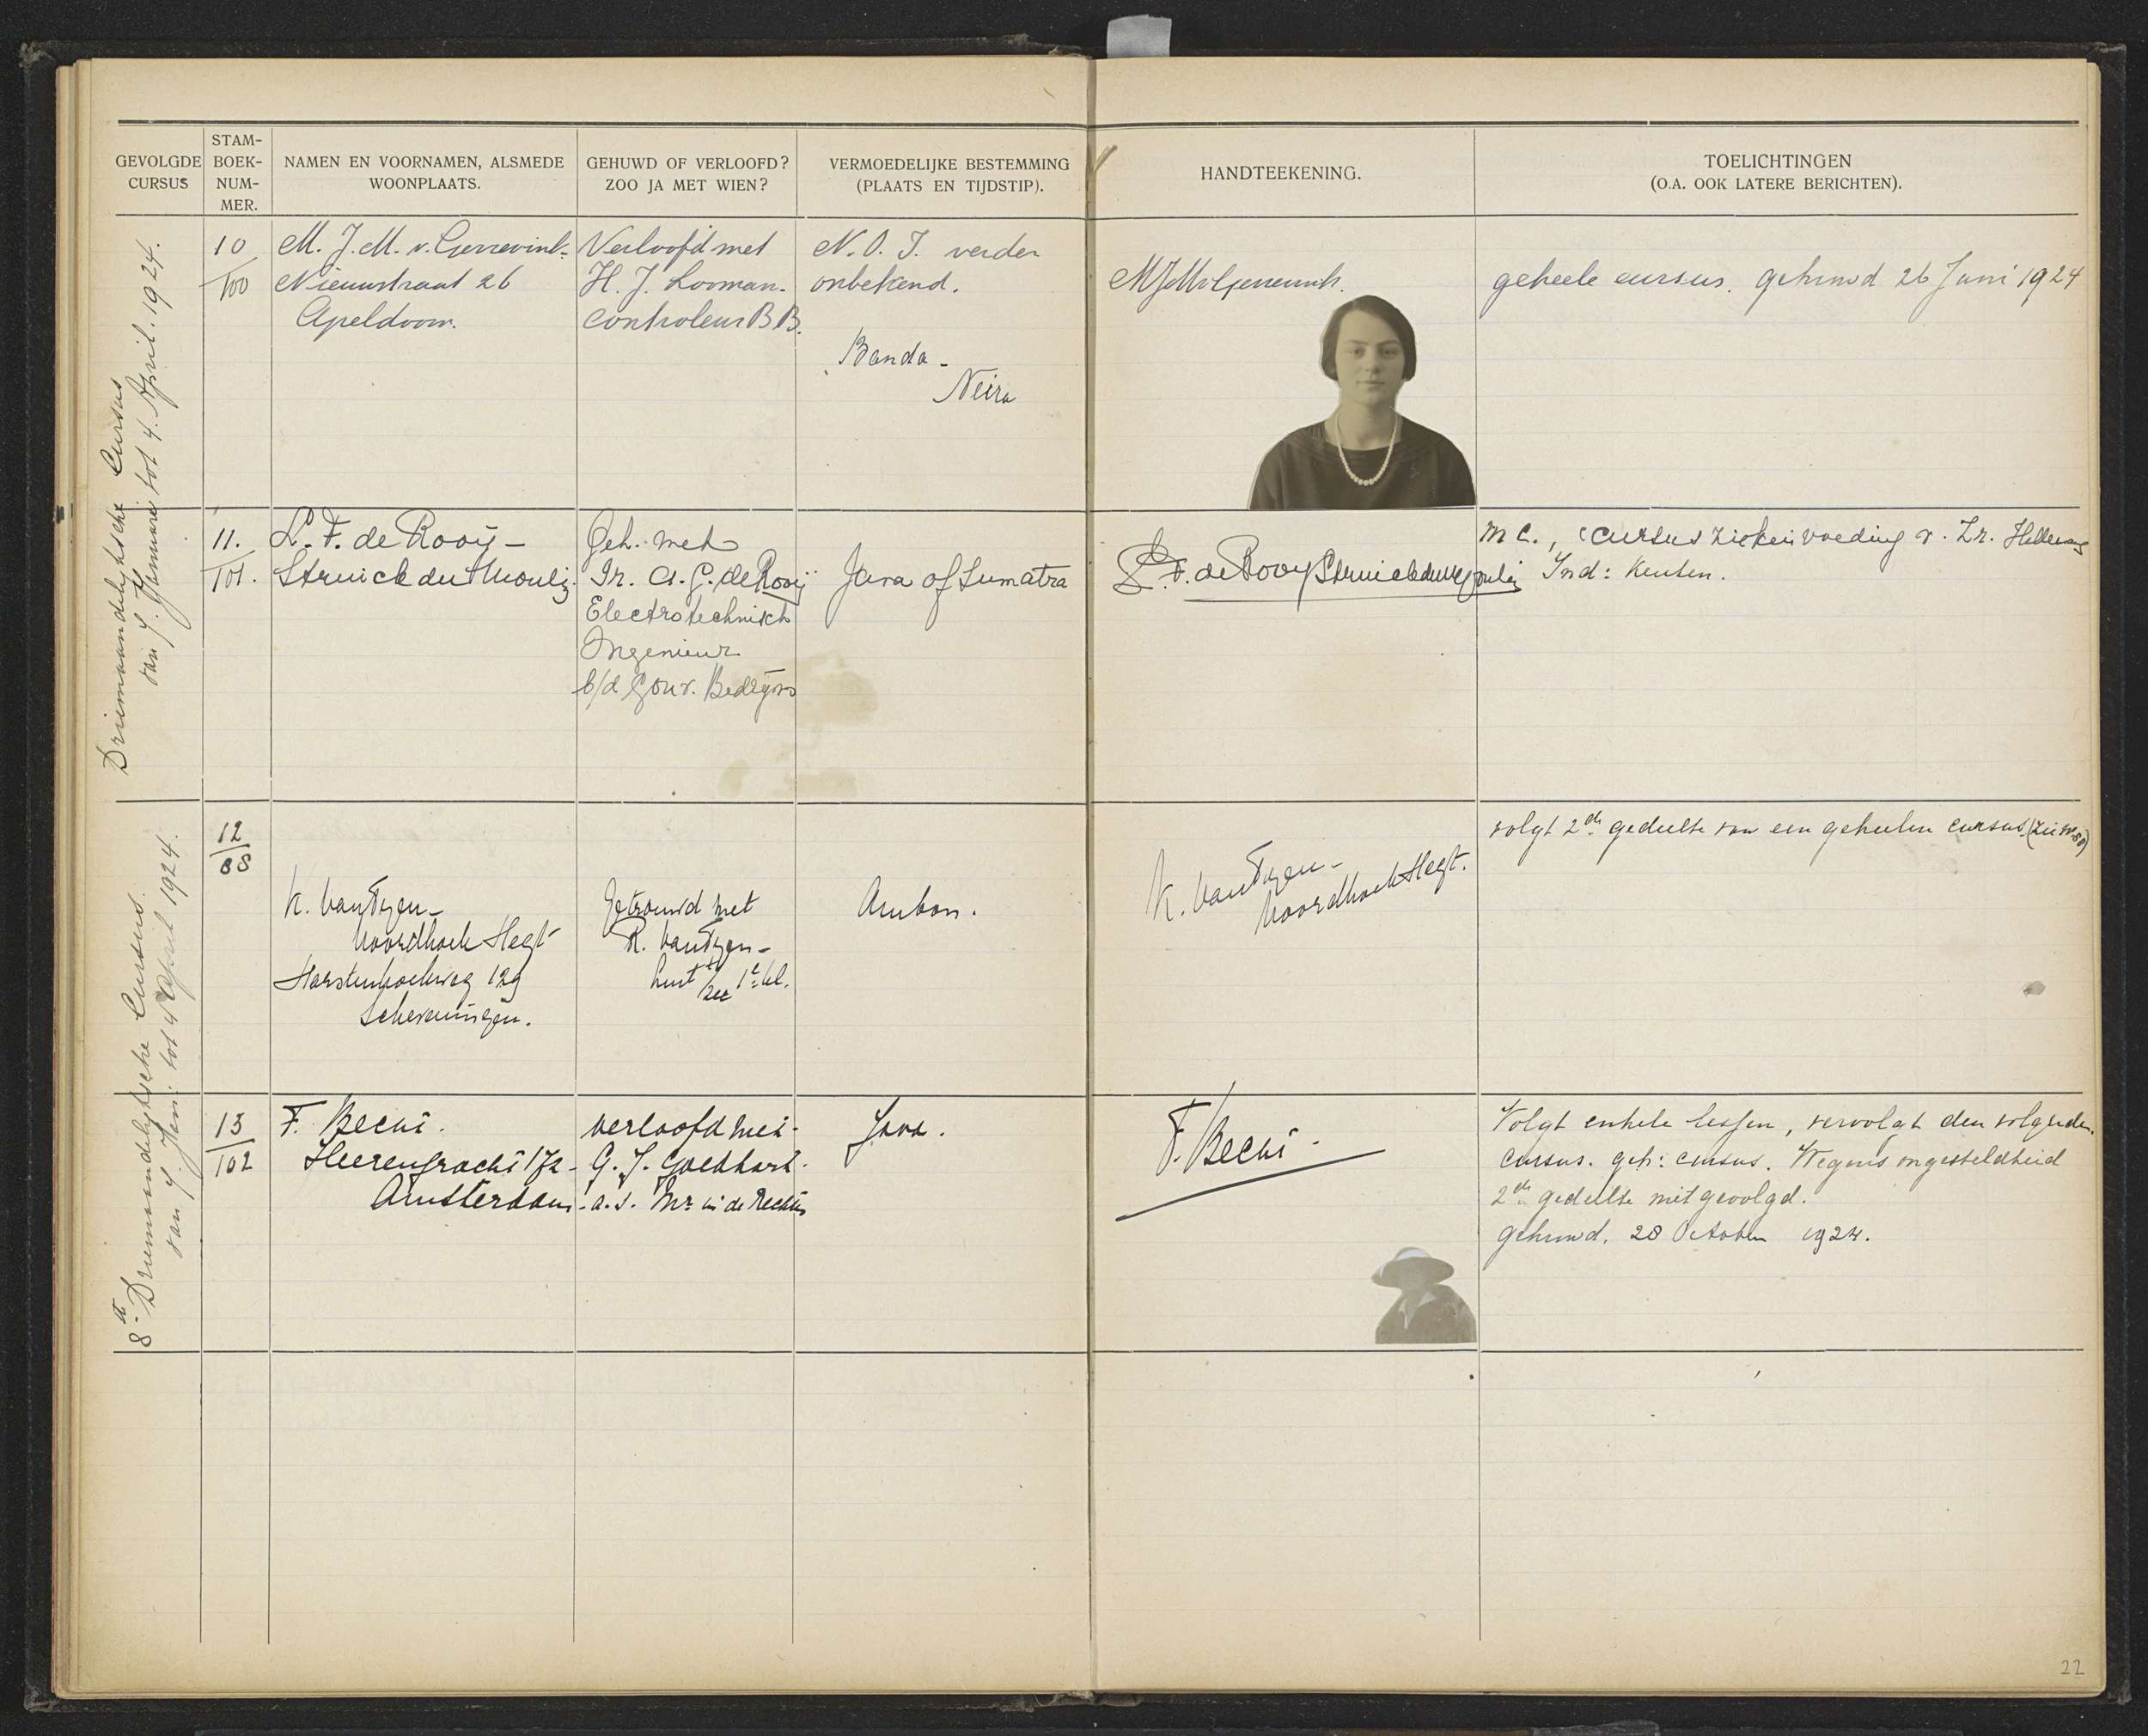 GEVOLGDE
CURSUS
STAM-
BOEK-
NUM-
MER.
NAMEN EN VOORNAMEN, ALSMEDE
WOONPLAATS.
GEHUWD OF VERLOOFD?
ZOO JA MET WIEN?
VERMOEDELIJKE BESTEMMING
(PLAATS EN TIJDSTIP).
HANDTEEKENING.
TOELICHTINGEN
(O.A. OOK LATERE BERICHTEN).
Driemaandelijksche Cursus
van 7. Januari tot 4. April. 1924.
10
100
M. J. M. v. Gerrevink-
Nieuwstraat 26
Apeldoorn.
Verloofd met
H. J. Looman.
Controleur B.B.
N. O. I. verder
onbekend.
Banda-
Neira
MJMvGerrevink.
geheele cursus. gehuwd 26 Juni 1924
11.
101.
L. F. de Rooij-
Struick du Moulin
Geh. met
Ir. A. G. de Rooij
Electrotechnisch
Ingenieur
b/d Gouv. Bedrijven
Java of Sumatra
L. F. de Rooy Struick du Moulin
m c., cursus ziekenvoeding v. Zr.
Ind: Keuken.
8ste Driemaandelijksche Cursus.
van 7. Jan: tot 4 April 1924.
12
88
K. van Tijen-
Noordhoek Hegt
Harstenhoekweg 129
Scheveningen.
Getrouwd met
R. van Tijen-
Luit t/zee 1e kl.
Ambon.
K. van Tijen-
Noordhoek Hegt.
volgt 2de gedeelte van een geheelen cursus (zie no 88)
13
102
F. Becht.
Heerengracht 172-
Amsterdam.
verloofd met.
G. J. Goedhart.
a.s. Mr in de Rechten
Java.
F. Becht.
Volgt enkele lessen, vervolgt den volgenden
cursus. geh: cursus. Wegens ongesteldheid
2de gedeelte niet gevolgd.
gehuwd. 28 October 1924.
22